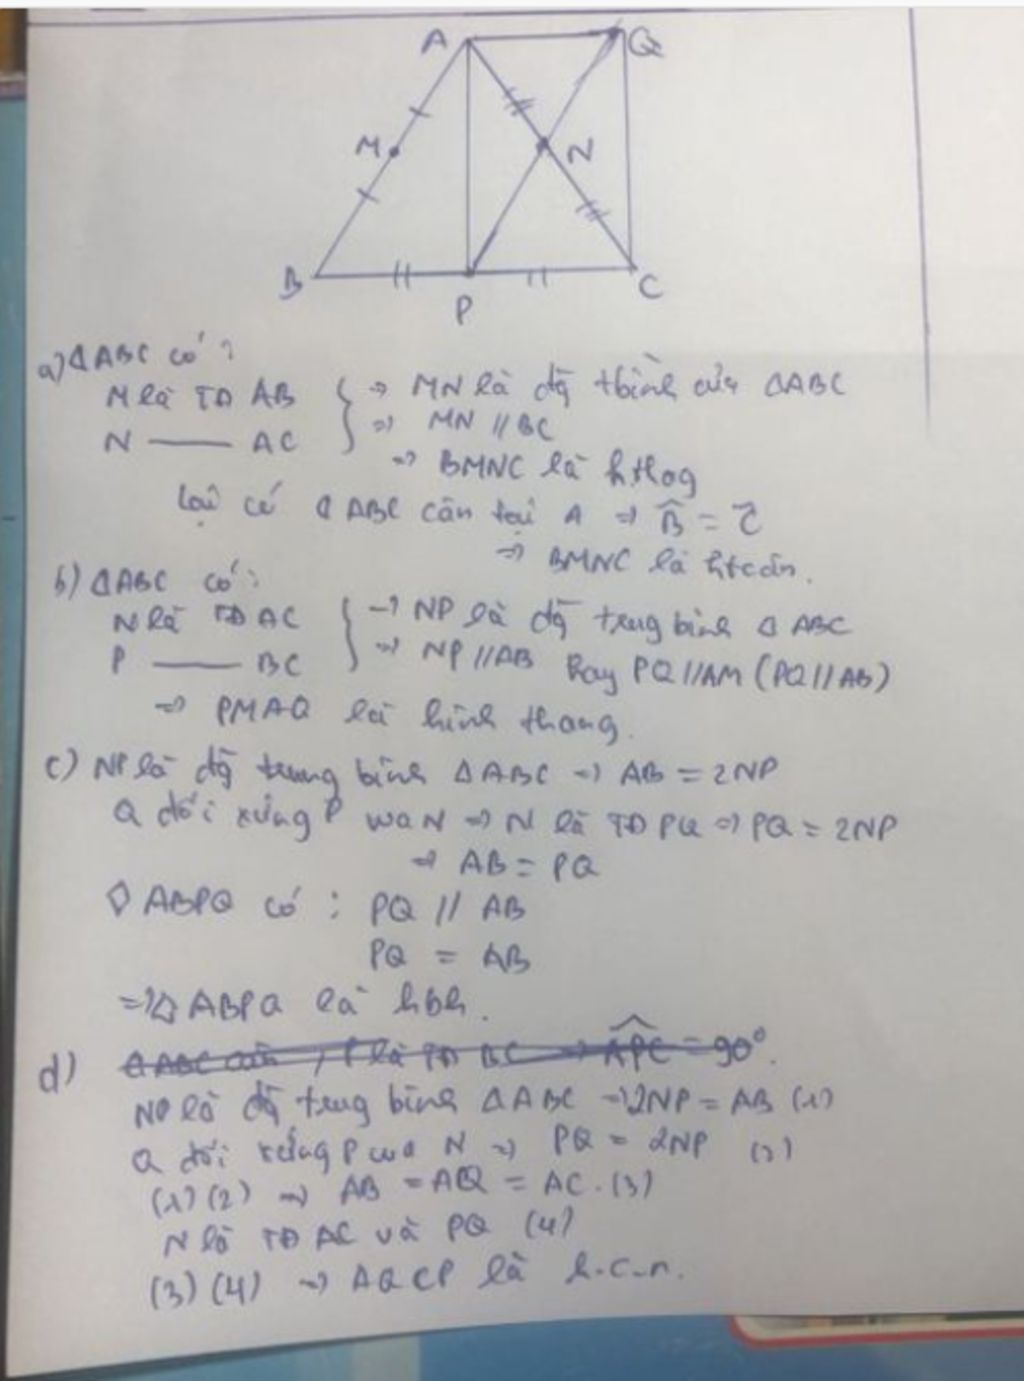 A
Q
M
N
B
P
C
a) ΔABC có:
M là TĐ AB } → MN là đg tbình của ΔABC
N —— AC } => MN // BC
=> BMNC là hthag
lại có ΔABC cân tại A => B̂ = Ĉ
=> BMNC là htcân.
b) ΔABC có:
N là TĐ AC } → NP là đg trug bình ΔABC
P —— BC } => NP//AB hay PQ//AM (PQ//AB)
=> PMAQ là hình thang.
c) NP là đg trung bình ΔABC => AB = 2NP
Q đối xứng P wa N => N là TĐ PQ => PQ = 2NP
=> AB = PQ
◊ ABPQ có : PQ // AB
PQ = AB
=> ABPQ là hbh.
d) ΔABC cân, P là TĐ BC => APC = 90°.
NP là đg trug bình ΔABC → 2NP = AB (1)
Q đối xứng P wa N => PQ = 2NP (2)
(1)(2) => AB = AQ = AC. (3)
N là TĐ AC và PQ (4)
(3)(4) => AQCP là h.c.n.